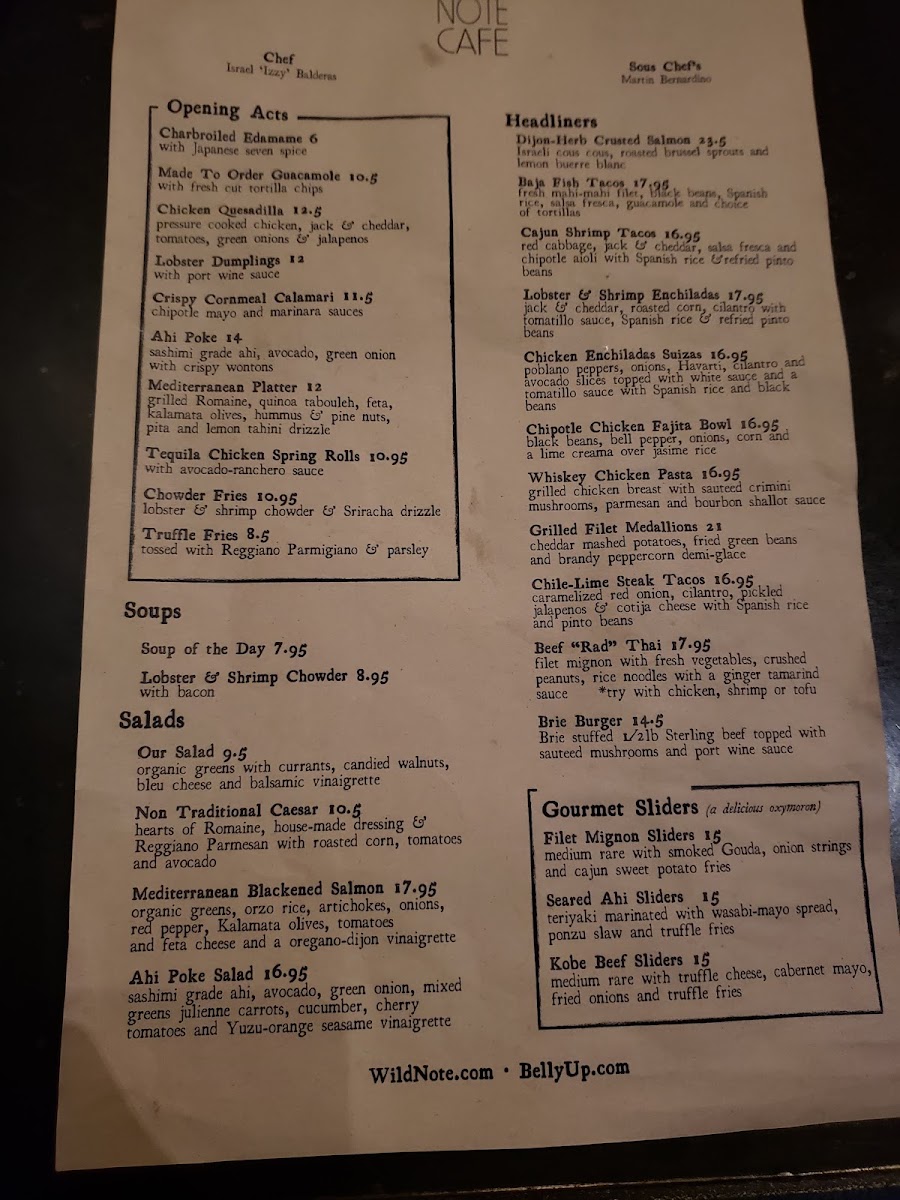 NOTE
CAFE
Chef
Israel "Izzy" Balderas
Sous Chef's
Martin Bernardino
Opening Acts
Charbroiled Edamame 6
with Japanese seven spice
Made To Order Guacamole 10.5
with fresh cut tortilla chips
Chicken Quesadilla 12.5
pressure cooked chicken, jack & cheddar,
tomatoes, green onions & jalapenos
Lobster Dumplings 12
with port wine sauce
Crispy Cornmeal Calamari 11.5
chipotle mayo and marinara sauces
Ahi Poke 14
sashimi grade ahi, avocado, green onion
with crispy wontons
Mediterranean Platter 12
grilled Romaine, quinoa tabouleh, feta,
kalamata olives, hummus & pine nuts,
pita and lemon tahini drizzle
Tequila Chicken Spring Rolls 10.95
with avocado-ranchero sauce
Chowder Fries 10.95
lobster & shrimp chowder & Sriracha drizzle
Truffle Fries 8.5
tossed with Reggiano Parmigiano & parsley
Soups
Soup of the Day 7.95
Lobster & Shrimp Chowder 8.95
with bacon
Salads
Our Salad 9.5
organic greens with currants, candied walnuts,
bleu cheese and balsamic vinaigrette
Non Traditional Caesar 10.5
hearts of Romaine, house-made dressing &
Reggiano Parmesan with roasted corn, tomatoes
and avocado
Mediterranean Blackened Salmon 17.95
organic greens, orzo rice, artichokes, onions,
red pepper, Kalamata olives, tomatoes
and feta cheese and a oregano-dijon vinaigrette
Ahi Poke Salad 16.95
sashimi grade ahi, avocado, green onion, mixed
greens julienne carrots, cucumber, cherry
tomatoes and Yuzu-orange seasame vinaigrette
Headliners
Dijon-Herb Crusted Salmon 23.5
Israeli cous cous, roasted brussel sprouts and
lemon buerre blanc
Baja Fish Tacos 17.95
fresh mahi-mahi filet, black beans, Spanish
rice, salsa fresca, guacamole and choice
of tortillas
Cajun Shrimp Tacos 16.95
red cabbage, jack & cheddar, salsa fresca and
chipotle aioli with Spanish rice & refried pinto
beans
Lobster & Shrimp Enchiladas 17.95
jack & cheddar, roasted corn, cilantro with
tomatillo sauce, Spanish rice & refried pinto
beans
Chicken Enchiladas Suizas 16.95
poblano peppers, onions, Havarti, cilantro and
avocado slices topped with white sauce and a
tomatillo sauce with Spanish rice and black
beans
Chipotle Chicken Fajita Bowl 16.95
black beans, bell pepper, onions, corn and
a lime creama over jasime rice
Whiskey Chicken Pasta 16.95
grilled chicken breast with sauteed crimini
mushrooms, parmesan and bourbon shallot sauce
Grilled Filet Medallions 21
cheddar mashed potatoes, fried green beans
and brandy peppercorn demi-glace
Chile-Lime Steak Tacos 16.95
caramelized red onion, cilantro, pickled
jalapenos & cotija cheese with Spanish rice
and pinto beans
Beef "Rad" Thai 17.95
filet mignon with fresh vegetables, crushed
peanuts, rice noodles with a ginger tamarind
sauce *try with chicken, shrimp or tofu
Brie Burger 14.5
Brie stuffed 1/2lb Sterling beef topped with
sauteed mushrooms and port wine sauce
Gourmet Sliders (a delicious oxymoron)
Filet Mignon Sliders 15
medium rare with smoked Gouda, onion strings
and cajun sweet potato fries
Seared Ahi Sliders 15
teriyaki marinated with wasabi-mayo spread,
ponzu slaw and truffle fries
Kobe Beef Sliders 15
medium rare with truffle cheese, cabernet mayo,
fried onions and truffle fries
WildNote.com · BellyUp.com